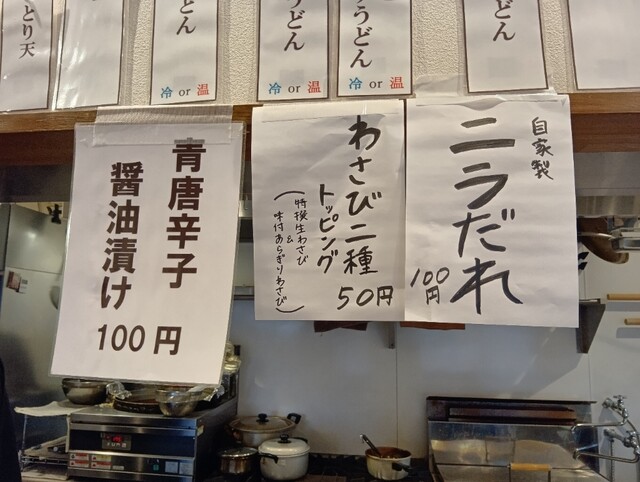 とり天
どん
冷 or 温
うどん
冷 or 温
うどん
冷 or 温
どん
青唐辛子
醤油漬け
100円
わさび二種
トッピング
(特撰生わさび
&
味付あらぎりわさび)
50円
自家製
ニラだれ
100円